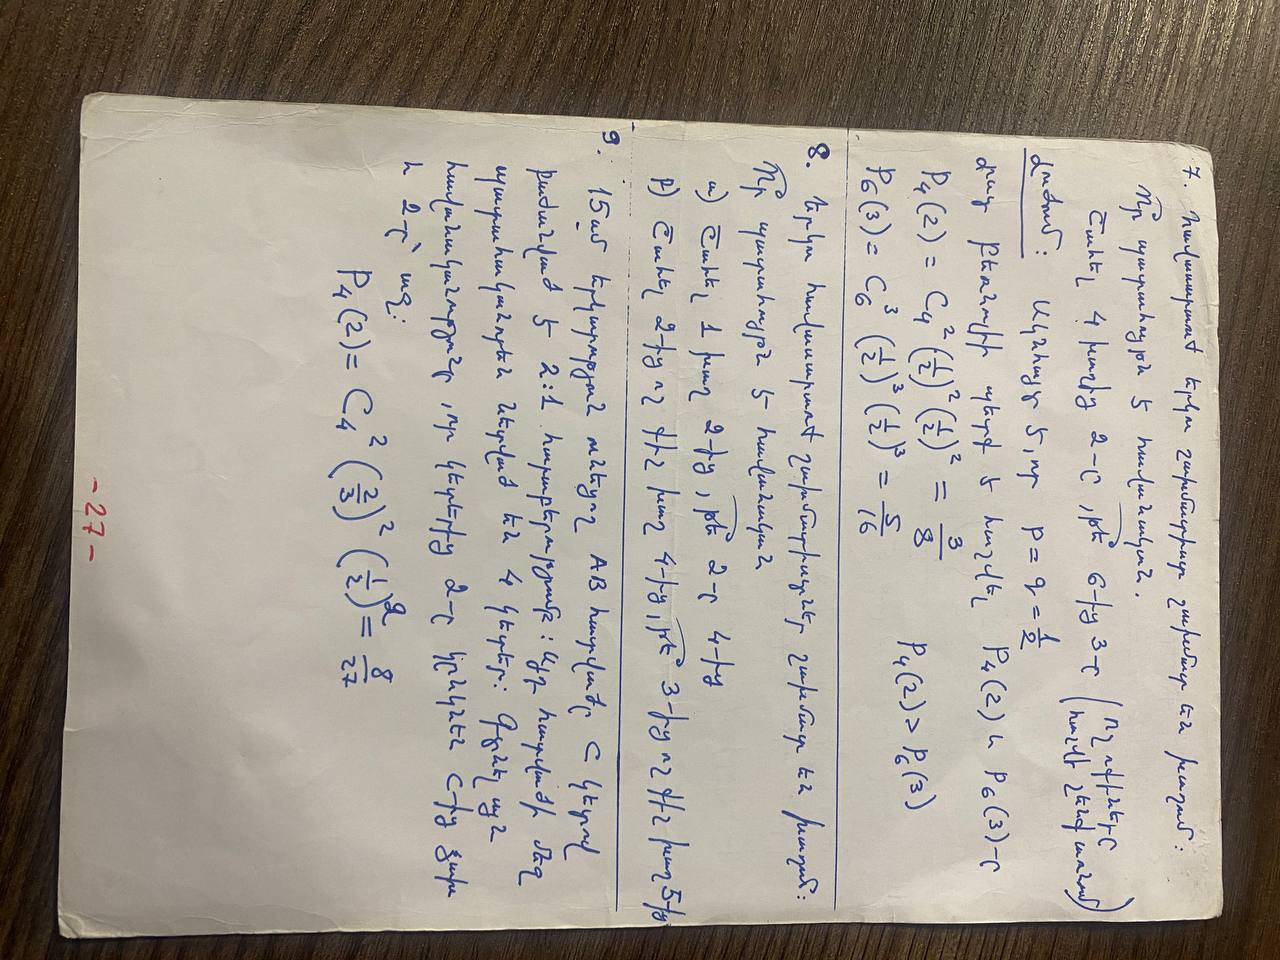 7. Հավասարաuժ երկու շախմատիստ շախմատ են խաղում:
Ո՞ր պատահույթն է հավանական.
Շահել 4 խաղից 2-ը, թե՞ 6-ից 3-ը (ոչ ոքիները հաշվի չենք առնում)
Լուծում: Ակնհայտ է, որ p = q = 1/2
մյուս կողմից պետք է հաշվել P₄(2) և P₆(3)-ը
P₄(2) = C₄² (1/2)² (1/2)² = 3/8
P₆(3) = C₆³ (1/2)³ (1/2)³ = 5/16 P₄(2) > P₆(3)
8. Երկու հավասարաuժ շախմատիստներ շախմատ են խաղում:
Ո՞ր պատահույթն է հավանական
ա) Շահել 1 խաղ 2-ից, թե՞ 2-ը 4-ից
բ) Շահել 2-ից ոչ քիչ խաղ 4-ից, թե՞ 3-ից ոչ քիչ խաղ 5-ից
9. 15 սմ երկարություն ունեցող AB հատվածը C կետով
բաժանված է 2:1 հարաբերությամբ: Այդ հատվածի մեջ
պատահականորեն նետված են 4 կետեր: Գտնել այն
հավանականությունը, որ կետերից 2-ը կընկնեն C-ից ձախ
և 2-ը՝ աջ:
P₄(2) = C₄² (2/3)² (1/3)² = 8/27
- 27 -